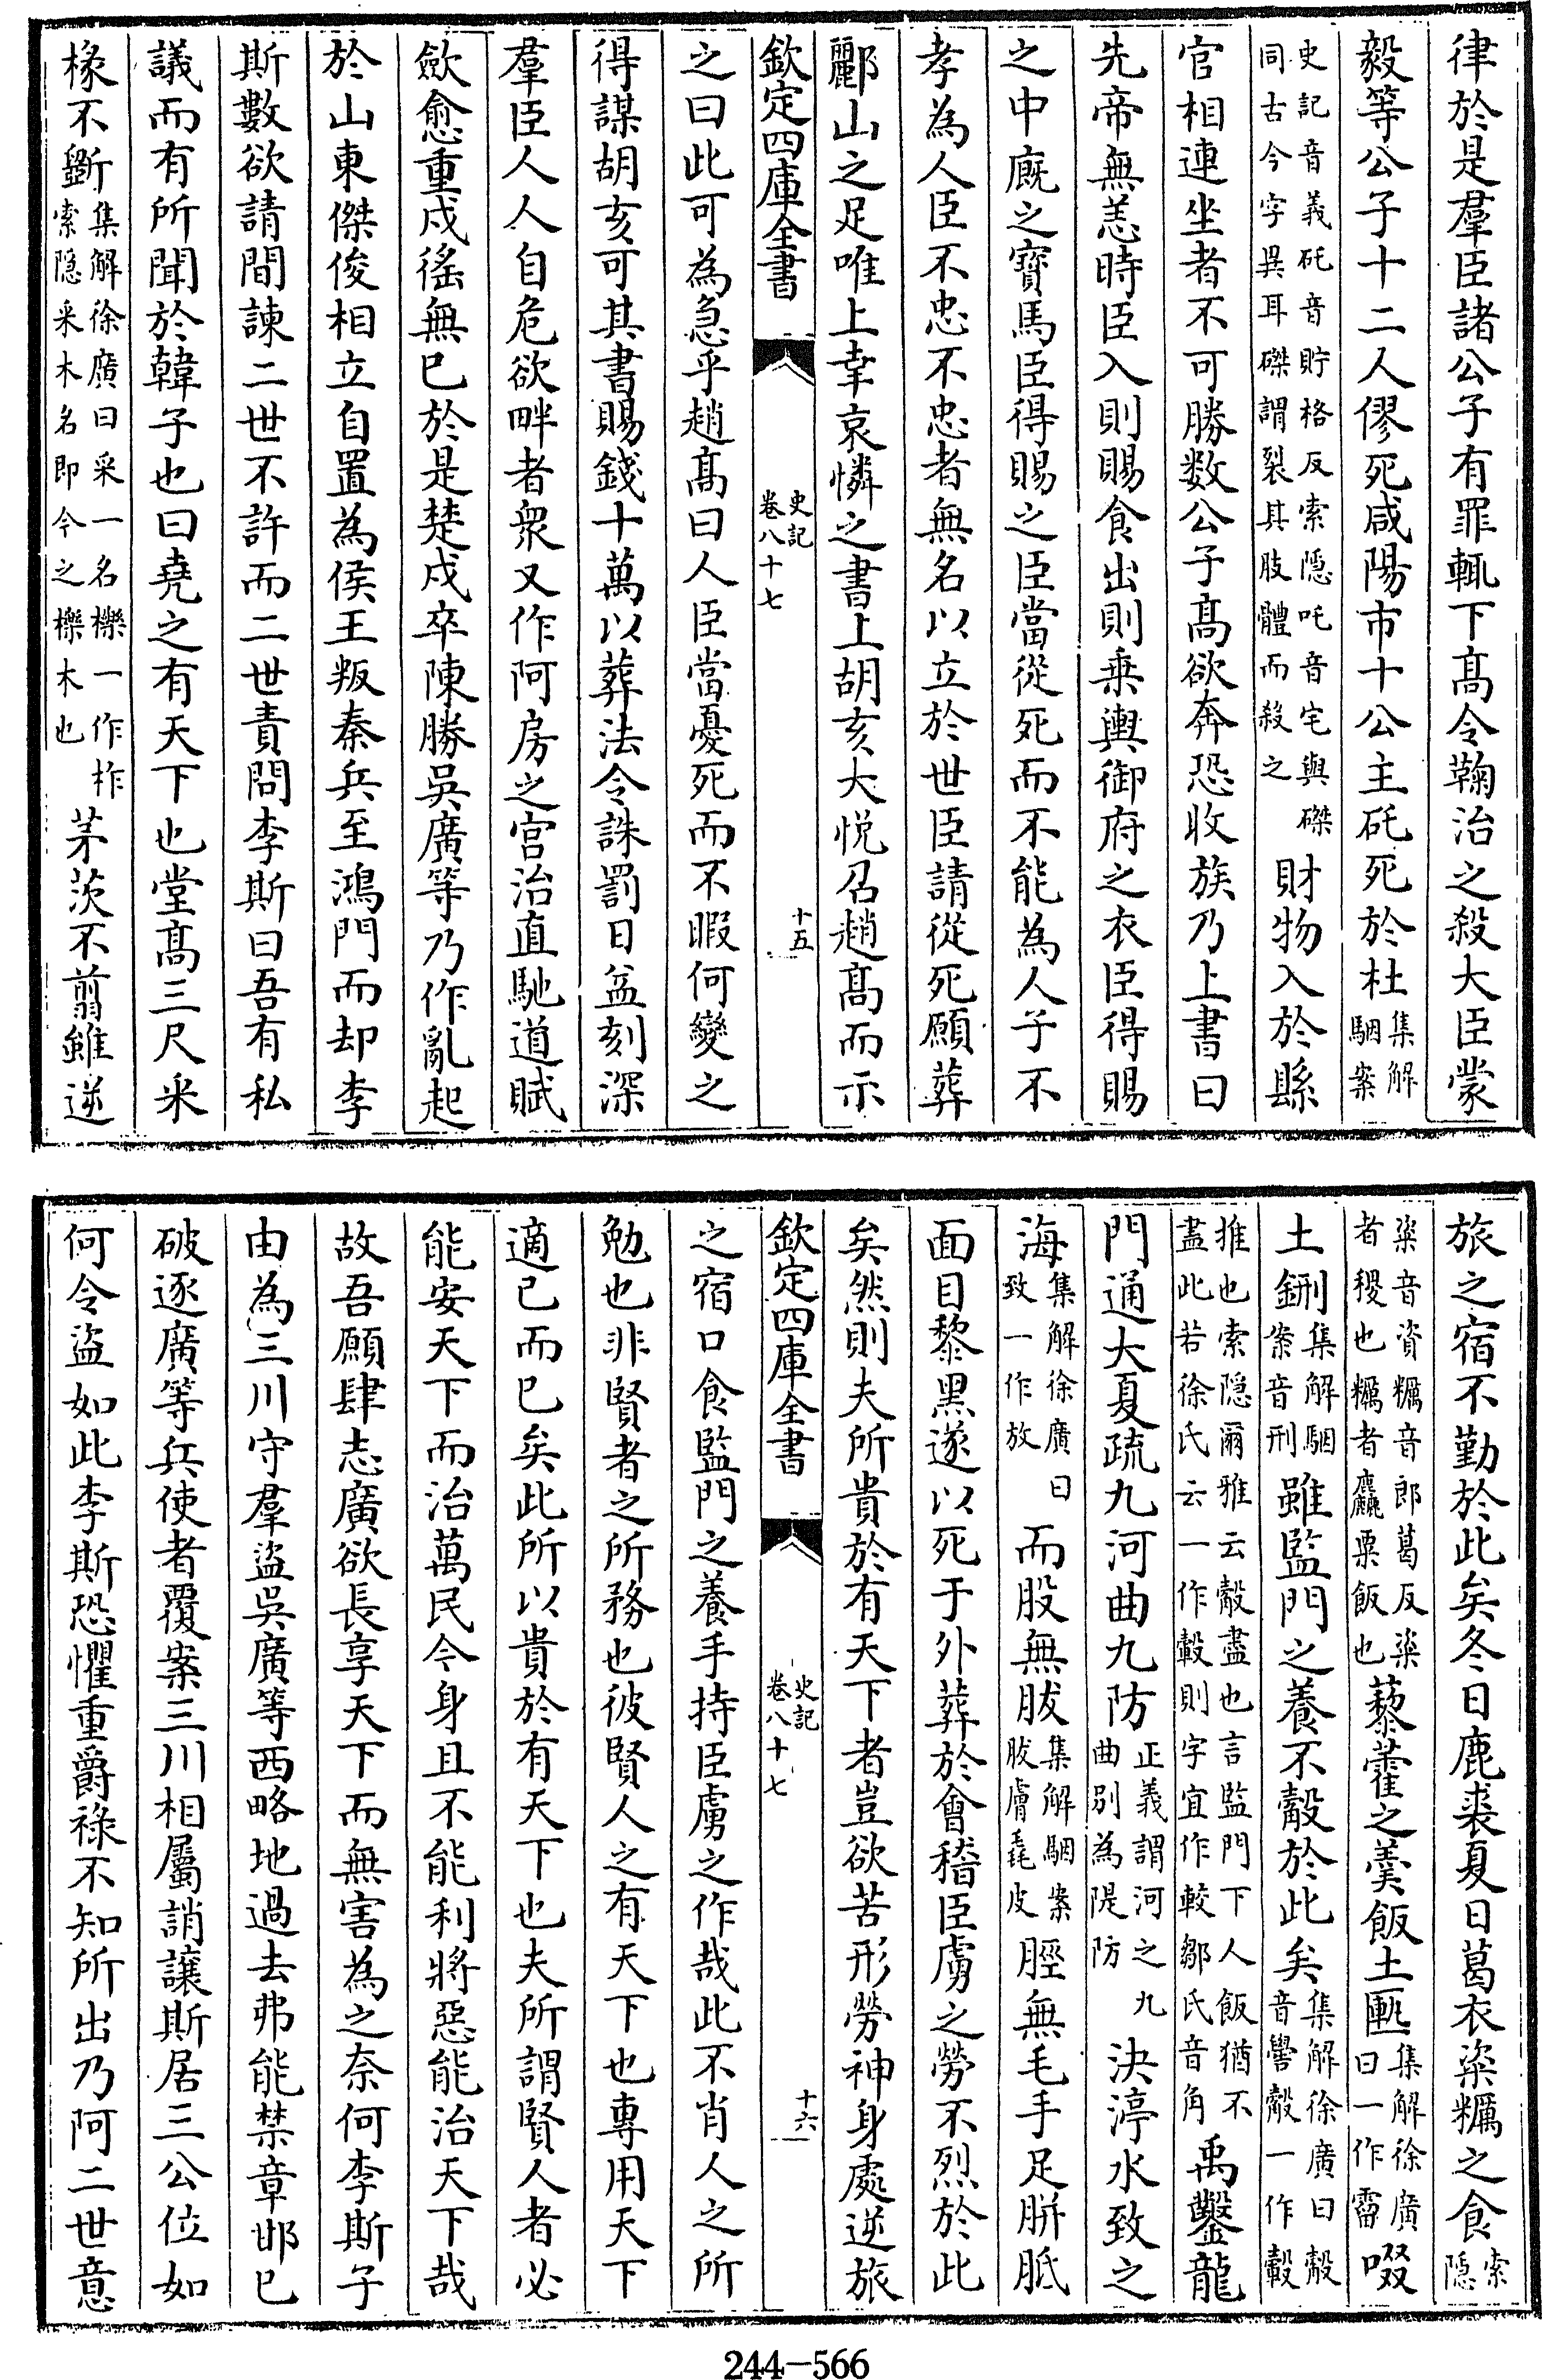 律於是羣臣諸公子有罪輒下髙令鞠治之殺大臣蒙
毅等公子十二人僇死咸陽市十公主矺死於杜集解駰案
史記音義矺音貯格反索隠吒音宅與磔同古今字異耳磔謂裂其肢體而殺之財物入於縣
官相連坐者不可勝数公子髙欲奔恐收族乃上書曰
先帝無恙時臣入則賜食出則乗輿御府之衣臣得賜
之中廐之寳馬臣得賜之臣當從死而不能為人子不
孝為人臣不忠不忠者無名以立於世臣請從死願葬
酈山之足唯上幸哀憐之書上胡亥大悦召趙髙而示
欽定四庫全書 史記卷八十七 十五
之曰此可為急乎趙髙曰人臣當憂死而不暇何變之
得謀胡亥可其書賜錢十萬以葬法令誅罰日益刻深
羣臣人人自危欲畔者衆又作阿房之宫治直馳道賦
歛愈重戍徭無已於是楚戍卒陳勝吳廣等乃作亂起
於山東傑俊相立自置為侯王叛秦兵至鴻門而却李
斯數欲請間諫二世不許而二世責問李斯曰吾有私
議而有所聞於韓子也曰堯之有天下也堂髙三尺采
椽不斵集解徐廣曰采一名櫟一作柞索隠采木名即今之櫟木也茅茨不翦雖逆
旅之宿不勤於此矣冬日鹿裘夏日葛衣粢糲之食索隠
粢音資糲音郎葛反粢者稷也糲者麤粟飯也藜藿之羮飯土匭集解徐廣曰一作霤啜
土鉶集解駰案音刑雖監門之養不觳於此矣集解徐廣曰觳音學觳一作轂
推也索隠爾雅云觳盡也言監門下人飯猶不盡此若徐氏云一作轂則字宜作較鄒氏音角禹鑿龍
門通大夏疏九河曲九防正義謂河之九曲别為隄防決渟水致之
海集解徐廣曰致一作放而股無胈集解駰案胈膚毳皮脛無毛手足胼胝
面目黎黒遂以死于外葬於會稽臣虜之勞不烈於此
矣然則夫所貴於有天下者豈欲苦形勞神身處逆旅
欽定四庫全書 史記卷八十七 十六
之宿口食監門之養手持臣虜之作哉此不肖人之所
勉也非賢者之所務也彼賢人之有天下也專用天下
適已而已矣此所以貴於有天下也夫所謂賢人者必
能安天下而治萬民今身且不能利將惡能治天下哉
故吾願肆志廣欲長享天下而無害為之奈何李斯子
由為三川守羣盜吳廣等西略地過去弗能禁章邯已
破逐廣等兵使者覆案三川相屬誚讓斯居三公位如
何令盜如此李斯恐懼重爵祿不知所出乃阿二世意
244-566